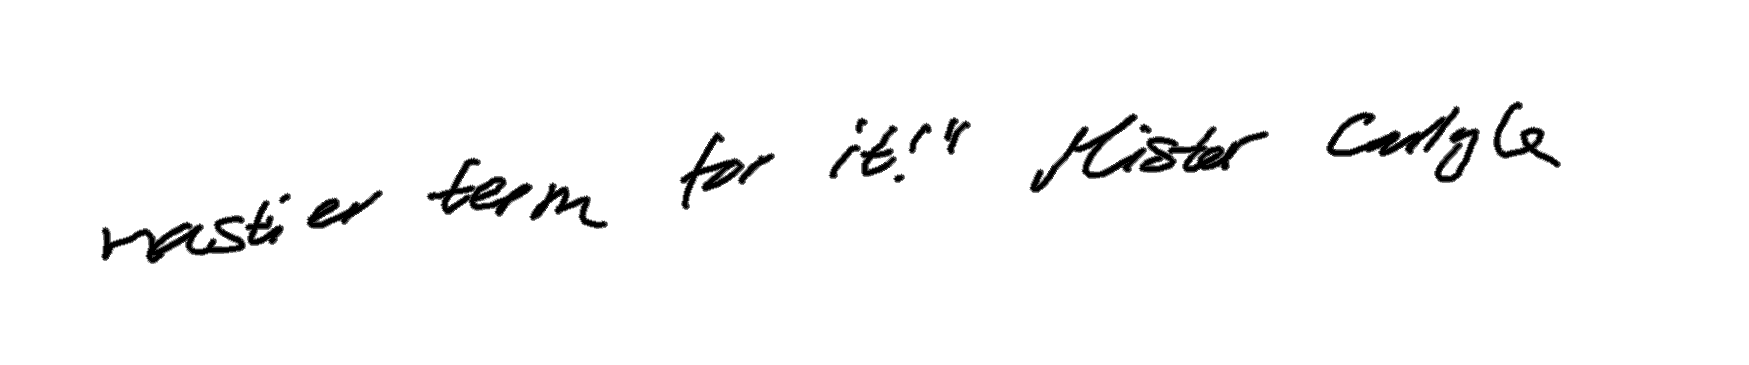 nastier term for it!" Mister Carlyle